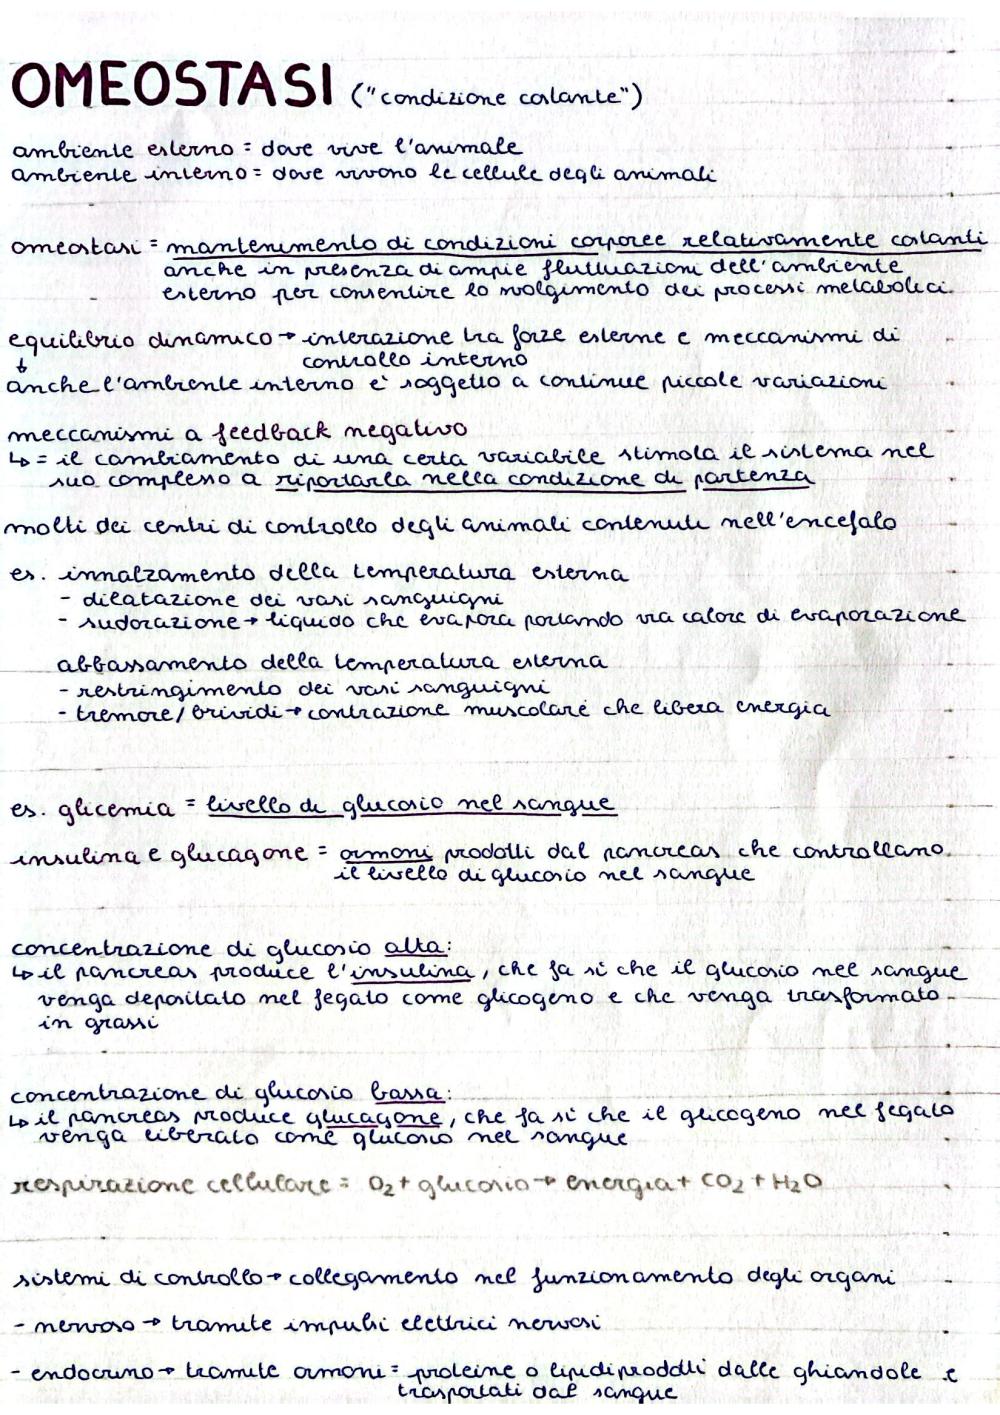 OMEOSTASI ("condizione costante")
ambiente esterno = dove vive l'animale
ambiente interno = dove vivono le cellule degli animali
omeostasi = mantenimento di condizioni corporee relativamente costanti
anche in presenza di ampie fluttuazioni dell'ambiente
esterno per consentire lo svolgimento dei processi metabolici.
equilibrio dinamico → interazione tra forze esterne e meccanismi di
controllo interno
↓
anche l'ambiente interno è soggetto a continue piccole variazioni
meccanismi a feedback negativo
↳ = il cambiamento di una certa variabile stimola il sistema nel
suo complesso a riportarla nella condizione di partenza
molti dei centri di controllo degli animali contenuti nell'encefalo
es. innalzamento della temperatura esterna
- dilatazione dei vasi sanguigni
- sudorazione → liquido che evapora portando via calore di evaporazione
abbassamento della temperatura esterna
- restringimento dei vasi sanguigni
- tremore/brividi → contrazione muscolare che libera energia
es. glicemia = livello di glucosio nel sangue
insulina e glucagone = ormoni prodotti dal pancreas che controllano
il livello di glucosio nel sangue
concentrazione di glucosio alta:
↳ il pancreas produce l'insulina, che fa sì che il glucosio nel sangue
venga depositato nel fegato come glicogeno e che venga trasformato
in grassi
concentrazione di glucosio bassa:
↳ il pancreas produce glucagone, che fa sì che il glicogeno nel fegato
venga liberato come glucosio nel sangue
respirazione cellulare = O₂ + glucosio → energia + CO₂ + H₂O
sistemi di controllo → collegamento nel funzionamento degli organi
- nervoso → tramite impulsi elettrici nervosi
- endocrino → tramite ormoni = proteine o lipidi prodotti dalle ghiandole e
trasportati dal sangue